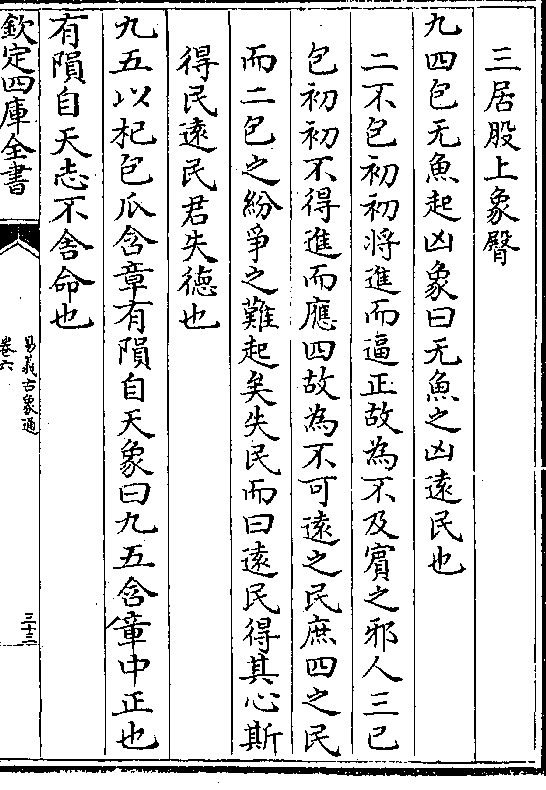 三居股上象臀
九四包无魚起凶象曰无魚之凶遠民也
二不包初初将進而逼正故為不及賓之邪人三已
包初初不得進而應四故為不可遠之民庶四之民
而二包之紛爭之難起矣失民而曰遠民得其心斯
得民遠民君失德也
九五以杞包瓜含章有隕自天象曰九五含章中正也
有隕自天志不舍命也
欽定四庫全書
易義古象通
卷六
三十三